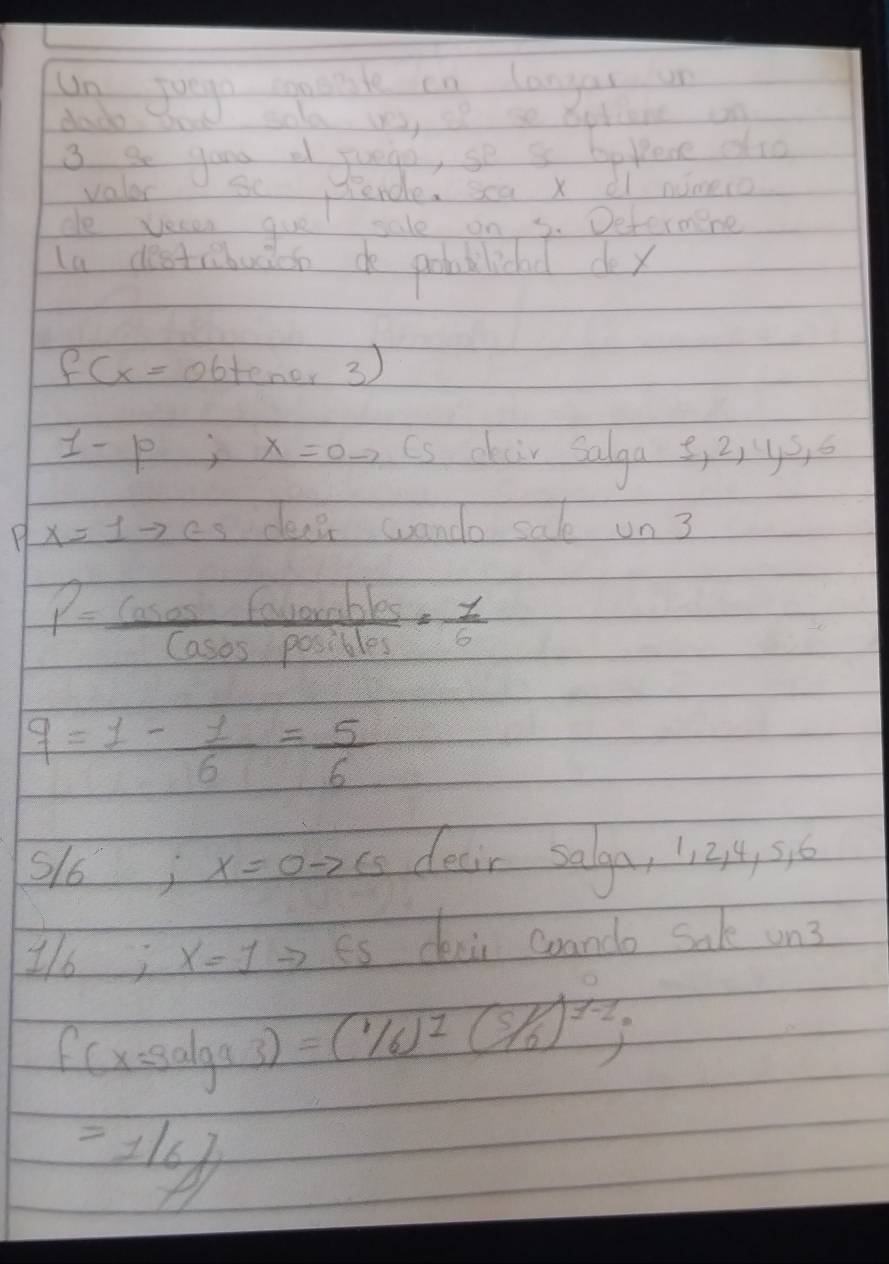 Un juego consiste en lanzar un
dado una sola ves, si se obtiene un
3 se gana el juego, si se obtiene otro
valor se pierde. sea x el número
de veces que sale un 3. Determine
la distribución de probabilidad de X
f(x = obtener 3)
1 - p ; x = 0 → Es decir salga 1, 2, 4, 5, 6
P x = 1 → es decir cuando sale un 3
P = Casos favorables / Casos posibles = 1/6
q = 1 - 1/6 = 5/6
5/6 ; x = 0 → es decir salga, 1, 2, 4, 5, 6
1/6 ; x = 1 → Es decir cuando sale un 3
f(x = salga 3) = (1/6)^1 (5/6)^1-1 0 ;
= 1/6